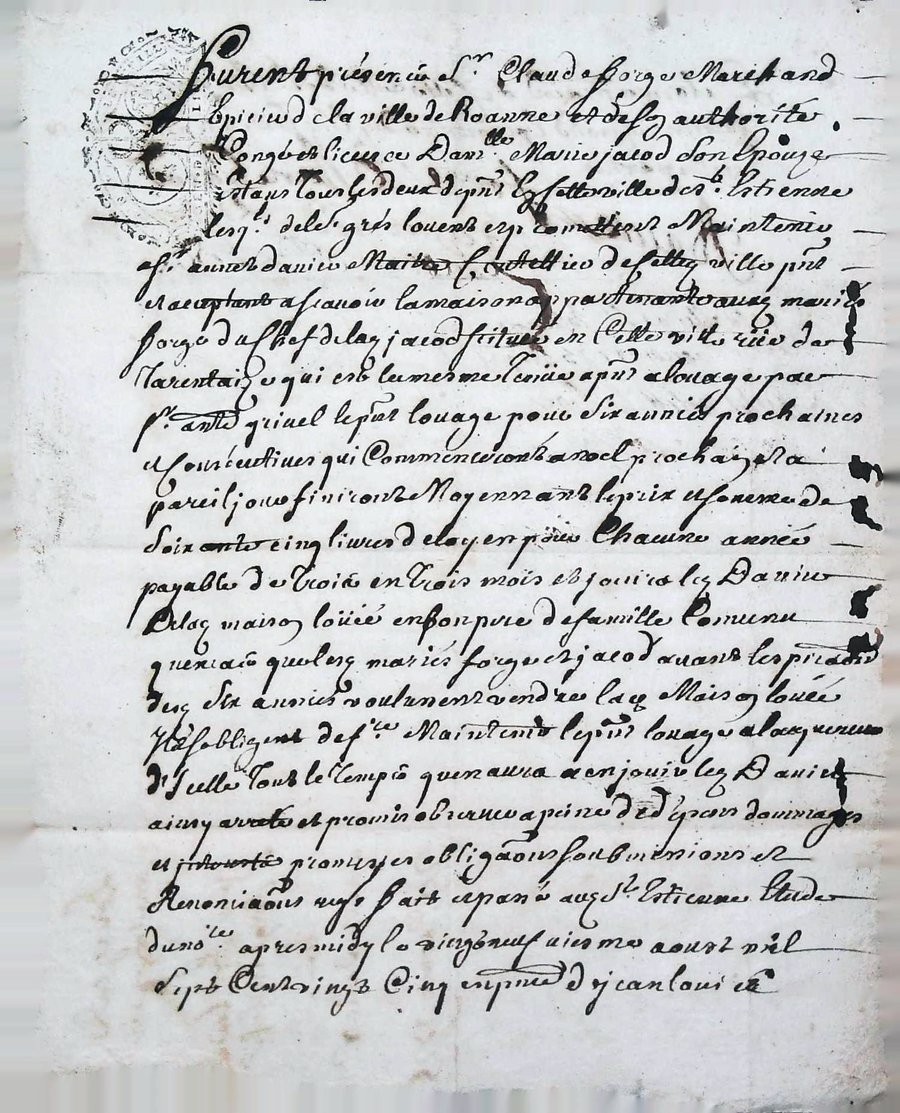 furent présents Sr Claude forge Marchand
Epicier de la ville de Roanne et de so authorité
Congé et licence Damlle Marie jacod son Epouze
Estans tous les deux de pnt En cette ville de st Estienne
lesqs de les grés louent et promettent Maintenir
a Sr annet danier Maitre Coutellier de cette ville pnt
et acceptant a scavoir la maison appartenante auxq mariés
forge du Chef de lad jacod scituée en Cette ville rüe de
Tarentaize qui est la mesme tenüe a pnt a louage par
sr ante grivel le pnt louage pour six années prochaines
et Consécutives qui Commenceront a noel prochain et a
pareil jour finiront Moyennant le prix et somme de
Soixante cinq livres de loyer pour Chacune année
payable de trois en trois mois et jouira led Danier
De lad maison loüée en bon pere de famille Comme
que lesd mariés forge et jacod avant les
desd six années voulussent vendre lad Maison louée
Ils s'obligent de fre Maintenir le pnt louage a l'acquereur
d'Icelle tout le temps qu'en aura a en jouir led Danier
ainsy arreté et promis observer a peine de dépens dommages
et promesses obligaons soubmissions et
Renonciaons fait et passé aud st Estienne Etude
du nore apres midy le vingt neuf viesme aoust mil
Sept Cent vingt Cinq en pnce de jean louis